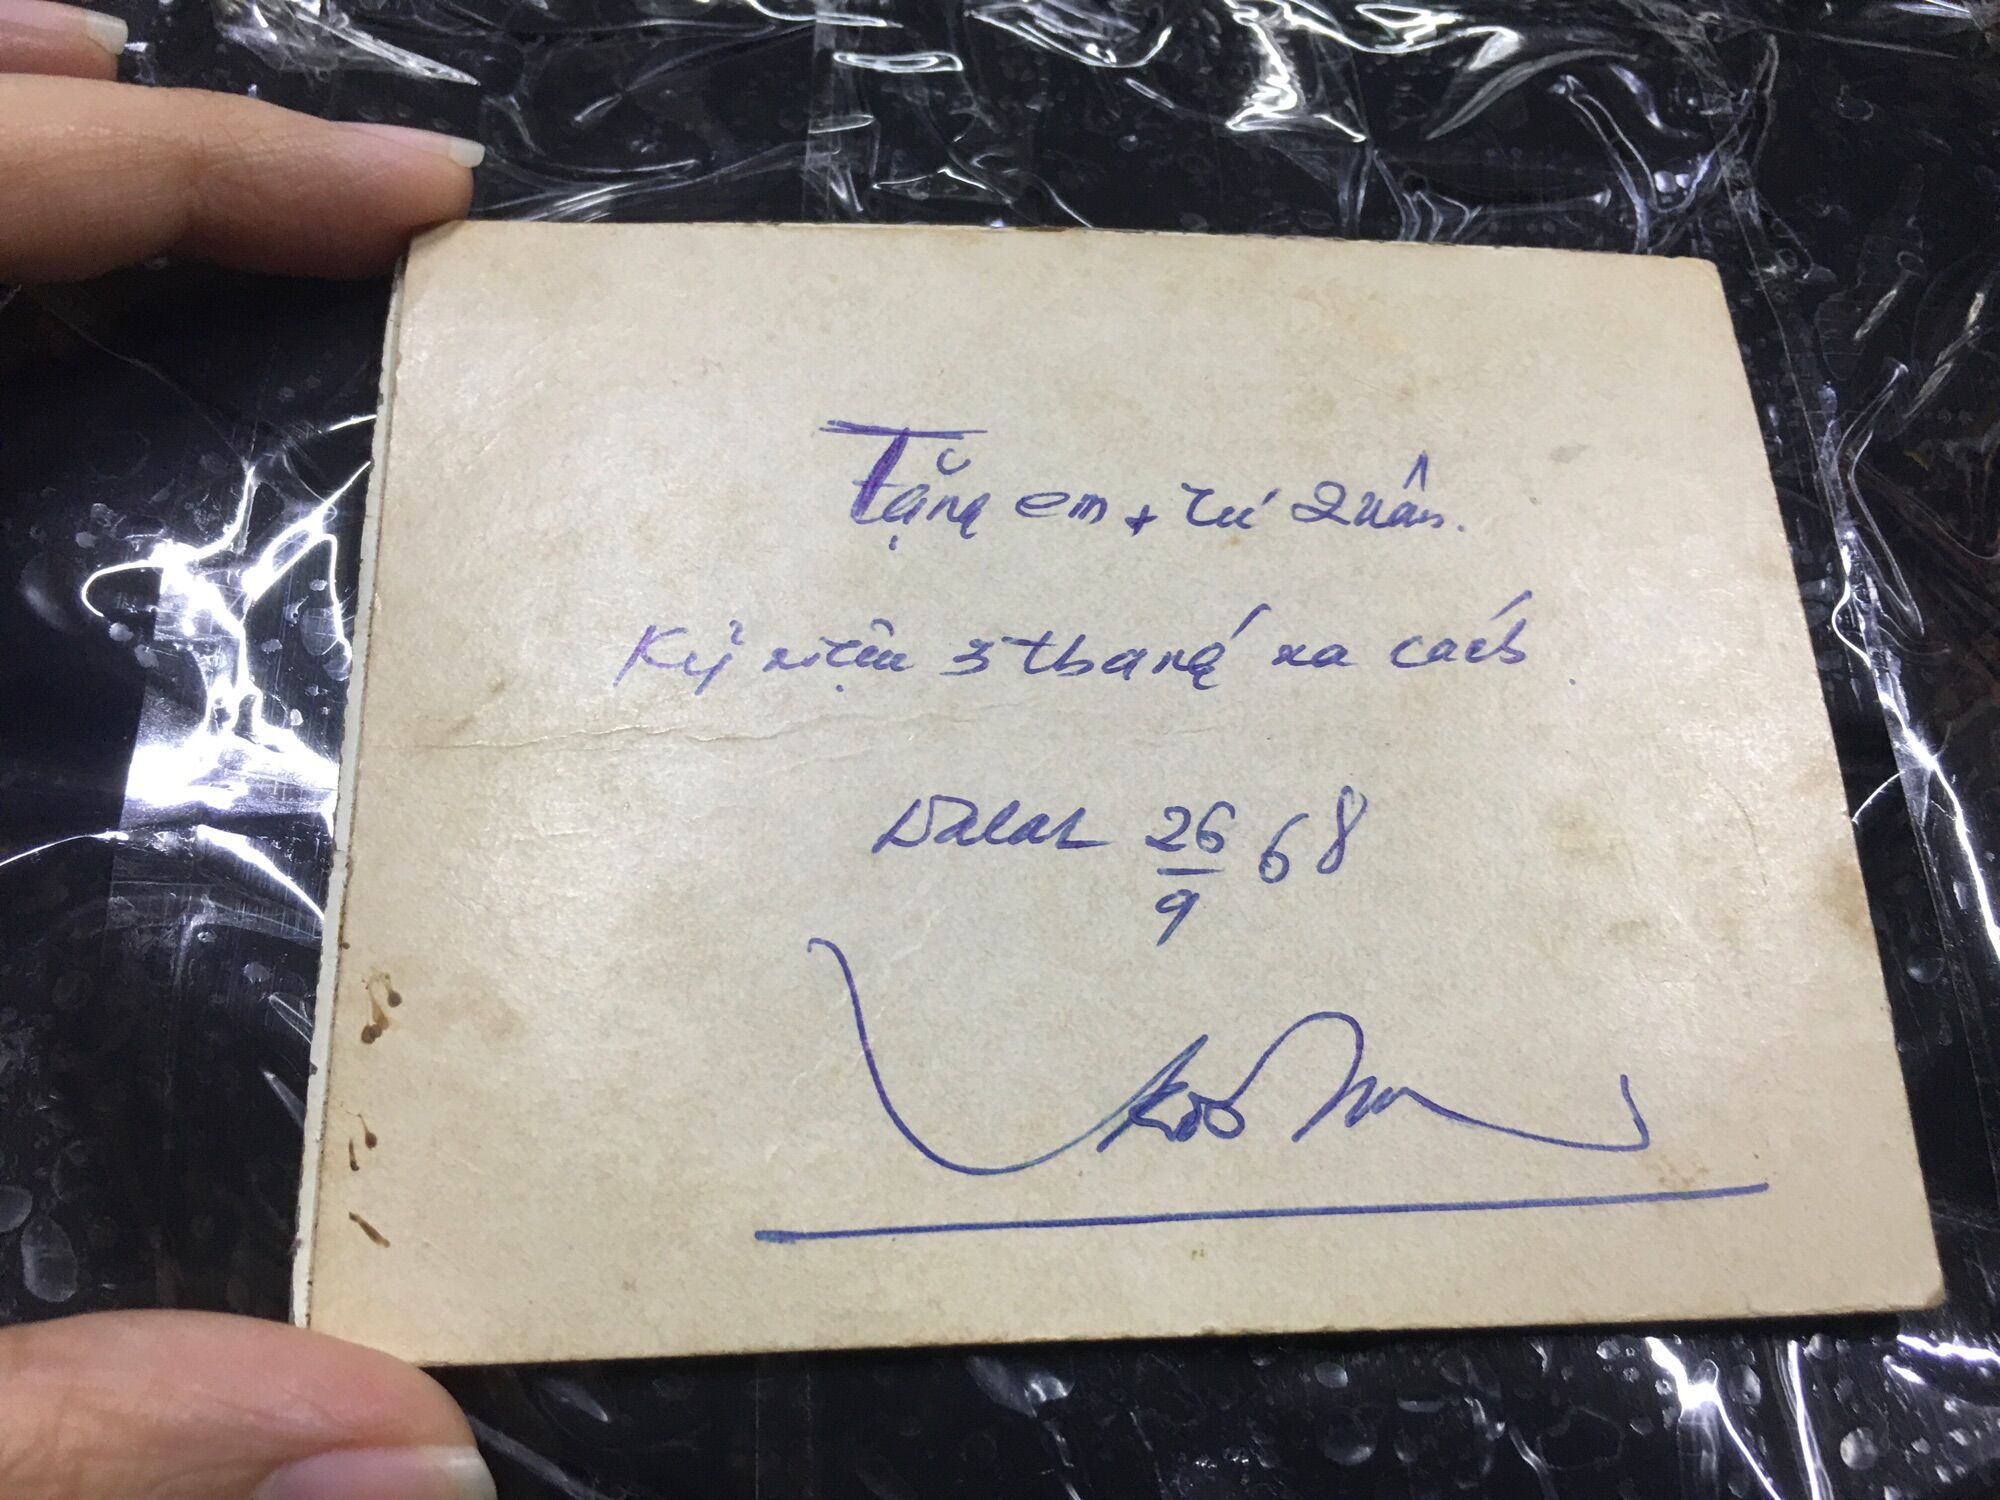 Tặng em + Tú Quân.
Kỷ niệm 3 tháng xa cách.
Dalat 26/9 68